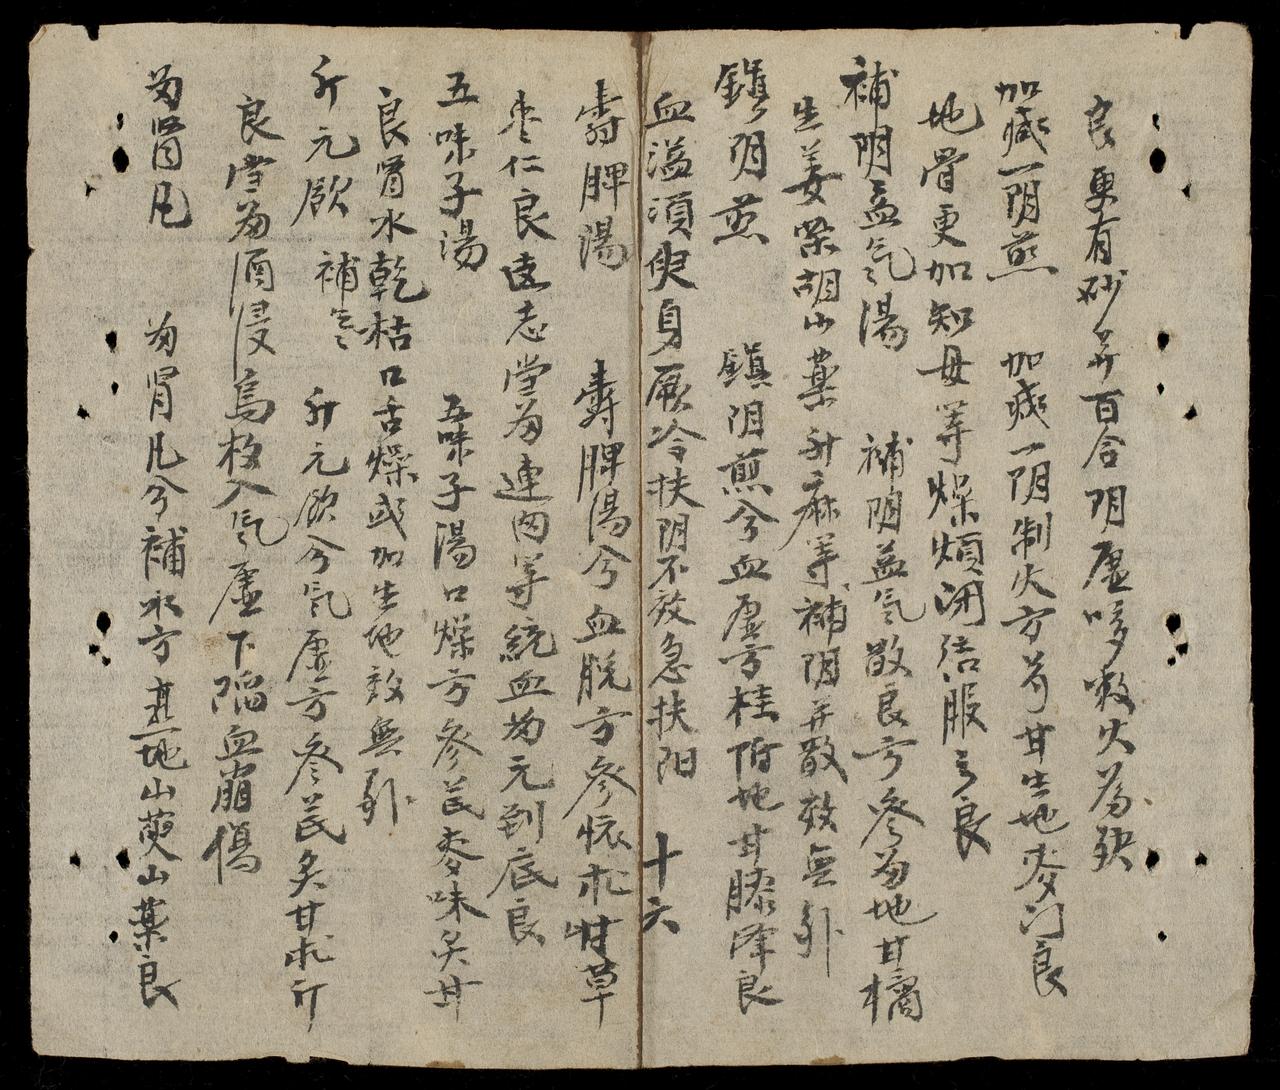 良更有砂并百合阴虚咳嗽火為殃
加減一阴煎　加減一阴制火方芍甘生地麥门良
地骨更加知母等燥煩闭结服之良
補阴益气湯　補阴益气散良方參為地甘橘
生姜柴胡山薬升麻等補阴并散效無卧
鎮阴煎　鎮阴煎兮血虛方桂附地甘膝泽良
血溢須臾身厥冷扶阴不效急扶阳　十六
壽脾湯　壽脾湯兮血脱方參懷朮甘草
枣仁良远志當為連肉等統血為元到底良
五味子湯　五味子湯口燥方參芪麥味炙甘
良腎水乾枯口舌燥或加生地效無卧
升元飲 補老　升元飲兮氣虛方參芪炙甘朮升
良當為酒浸烏梅入气虛下陷血崩傷
為腎凡　為腎凡兮補水方熟地山萸山薬良